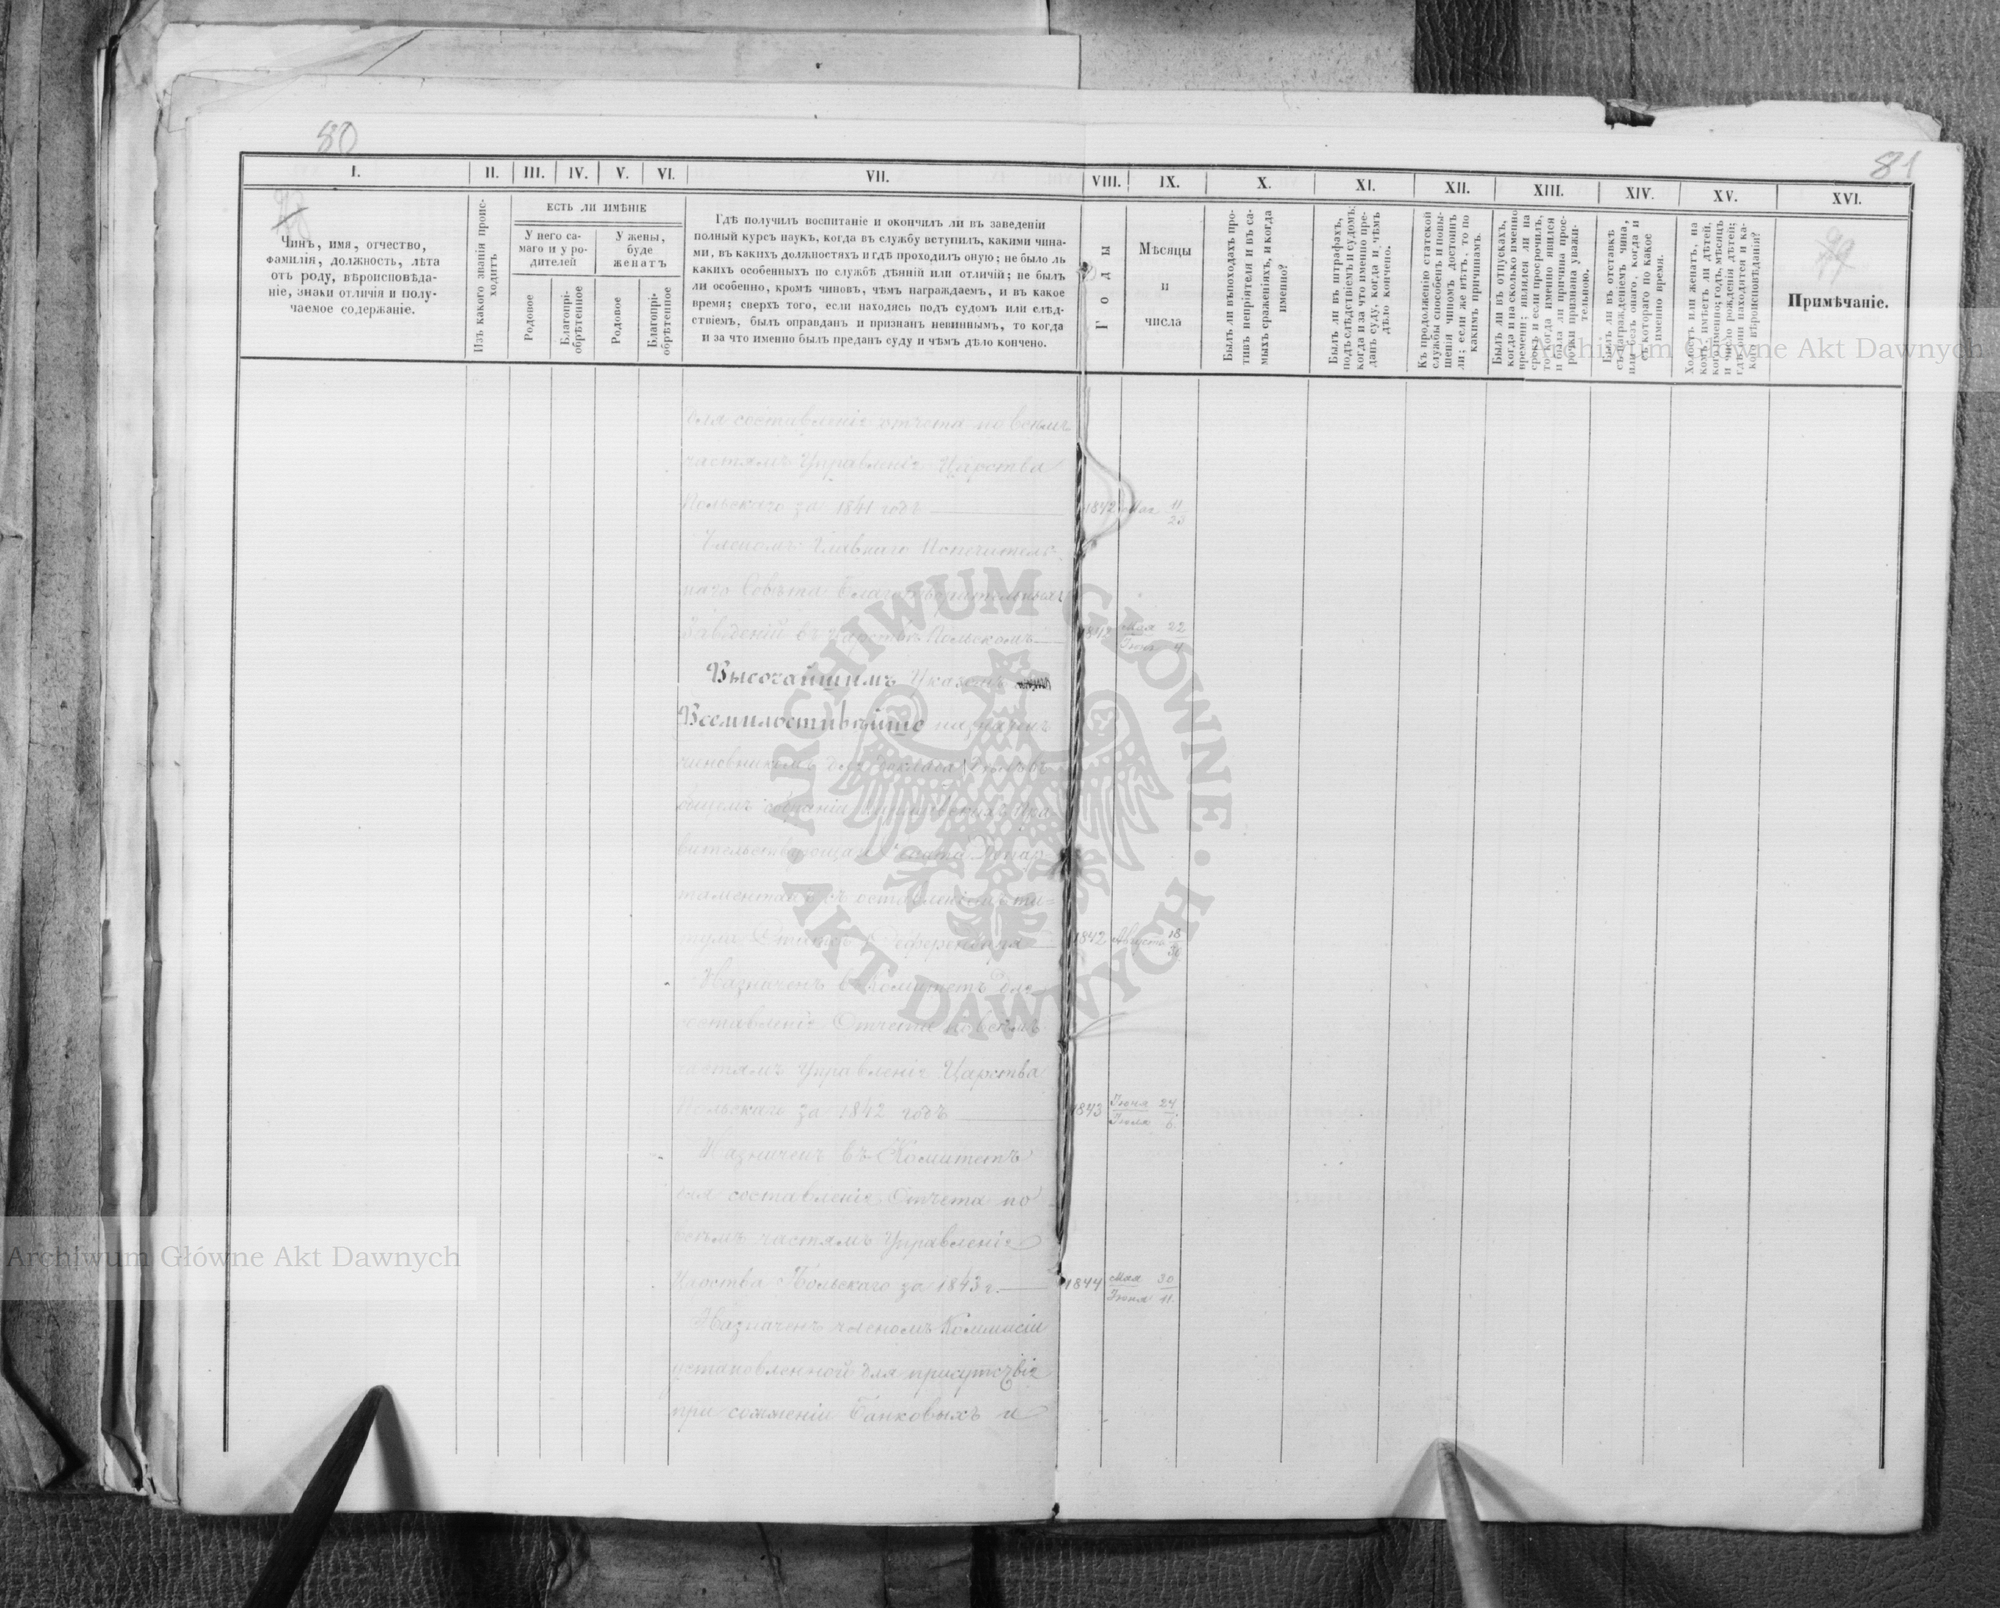 80
81
I.
II.
III.
IV.
V.
VI.
VII.
VIII.
IX.
X.
XI.
XII.
XIII.
XIV.
XV.
XVI.
Чинъ, имя, отчество,
фамилія, должность, лѣта
отъ роду, вѣроисповѣда-
ніе, знаки отличія и полу-
чаемое содержаніе.
Изъ какого званія проис-
ходитъ
ЕСТЬ ЛИ ИМѢНІЕ
У него са-
маго и у ро-
дителей
У жены,
буде
женатъ
Родовое
Благопрі-
обрѣтенное
Родовое
Благопрі-
обрѣтенное
Гдѣ получилъ воспитаніе и окончилъ ли въ заведеніи
полный курсъ наукъ, когда въ службу вступилъ, какими чина-
ми, въ какихъ должностяхъ и гдѣ проходилъ оную; не было ль
какихъ особенныхъ по службѣ дѣяній или отличій; не былъ
ли особенно, кромѣ чиновъ, чѣмъ награждаемъ, и въ какое
время; сверхъ того, если находясь подъ судомъ или слѣд-
ствіемъ, былъ оправданъ и признанъ невиннымъ, то когда
и за что именно былъ преданъ суду и чѣмъ дѣло кончено.
Годы
Мѣсяцы
и
числа
Былъ ли въ походахъ про-
тивъ непріятеля и въ са-
мыхъ сраженіяхъ, и когда
именно?
Былъ ли въ штрафахъ,
подъ слѣдствіемъ и судомъ;
когда и за что именно пре-
данъ суду, когда и чѣмъ
дѣло кончено.
Къ продолженію статской
службы способенъ и повы-
шенія чиномъ достоинъ
ли; если же нѣтъ, то по
какимъ причинамъ.
Былъ ли въ отпускахъ,
когда и на сколько именно
времени; являлся ли на
срокъ и если просрочилъ,
то когда именно явился
и была ли причина прос-
рочки признана уважи-
тельною.
Былъ ли въ отставкѣ
съ награжденіемъ чина,
или безъ онаго, когда и
съ котораго по какое
именно время.
Холостъ или женатъ, на
комъ, имѣетъ ли дѣтей,
кого именно; годъ, мѣсяцъ
и число рожденія дѣтей;
гдѣ они находятся и ка-
кого вѣроисповѣданія?
Примѣчаніе.
для составленія отчета по всѣмъ
частямъ Управленія Царства
Польскаго за 1841 годъ 1842 Мая 11/23
Членомъ Главнаго Попечитель-
наго Совѣта Благотворительныхъ
Заведеній въ Царствѣ Польскомъ 1842 Мая 22 / Іюня
Высочайшимъ Указомъ
Всемилостивѣйше назначенъ
чиновникомъ для доклада дѣлъ въ
общемъ собраніи Варшавскихъ Пра-
вительствующаго Сената Депар-
таментовъ съ оставленіемъ ти-
тула Статсъ Референдаря 1842 Августа 18/30
Назначенъ въ Комитетъ для
составленія Отчета по всѣмъ
частямъ Управленія Царства
Польскаго за 1842 годъ 1843 Іюня 24 / Іюля 6
Назначенъ въ Комитетъ
для составленія Отчета по
всѣмъ частямъ Управленія
Царства Польскаго за 1843 г. 1844 Мая 30 / Іюня 11.
Назначенъ членомъ Коммисіи
установленной для присутствія
при сожженіи Банковыхъ и
ARCHIWUM GŁÓWNE AKT DAWNYCH
Archiwum Główne Akt Dawnych
Archiwum Główne Akt Dawnych